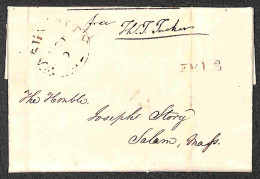 free
Th. T. Tucker
FREE
The Honble.
Joseph Story
Salem, Mass.